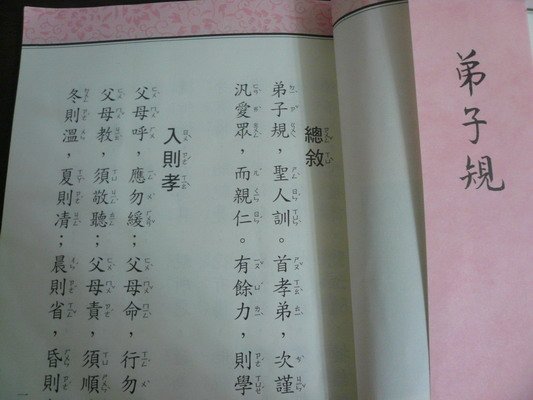 弟子規
總敘
弟子規，聖人訓。首孝弟，次謹
汎愛眾，而親仁。有餘力，則學
入則孝
父母呼，應勿緩；父母命，行勿
父母教，須敬聽；父母責，須順
冬則溫，夏則凊；晨則省，昏則